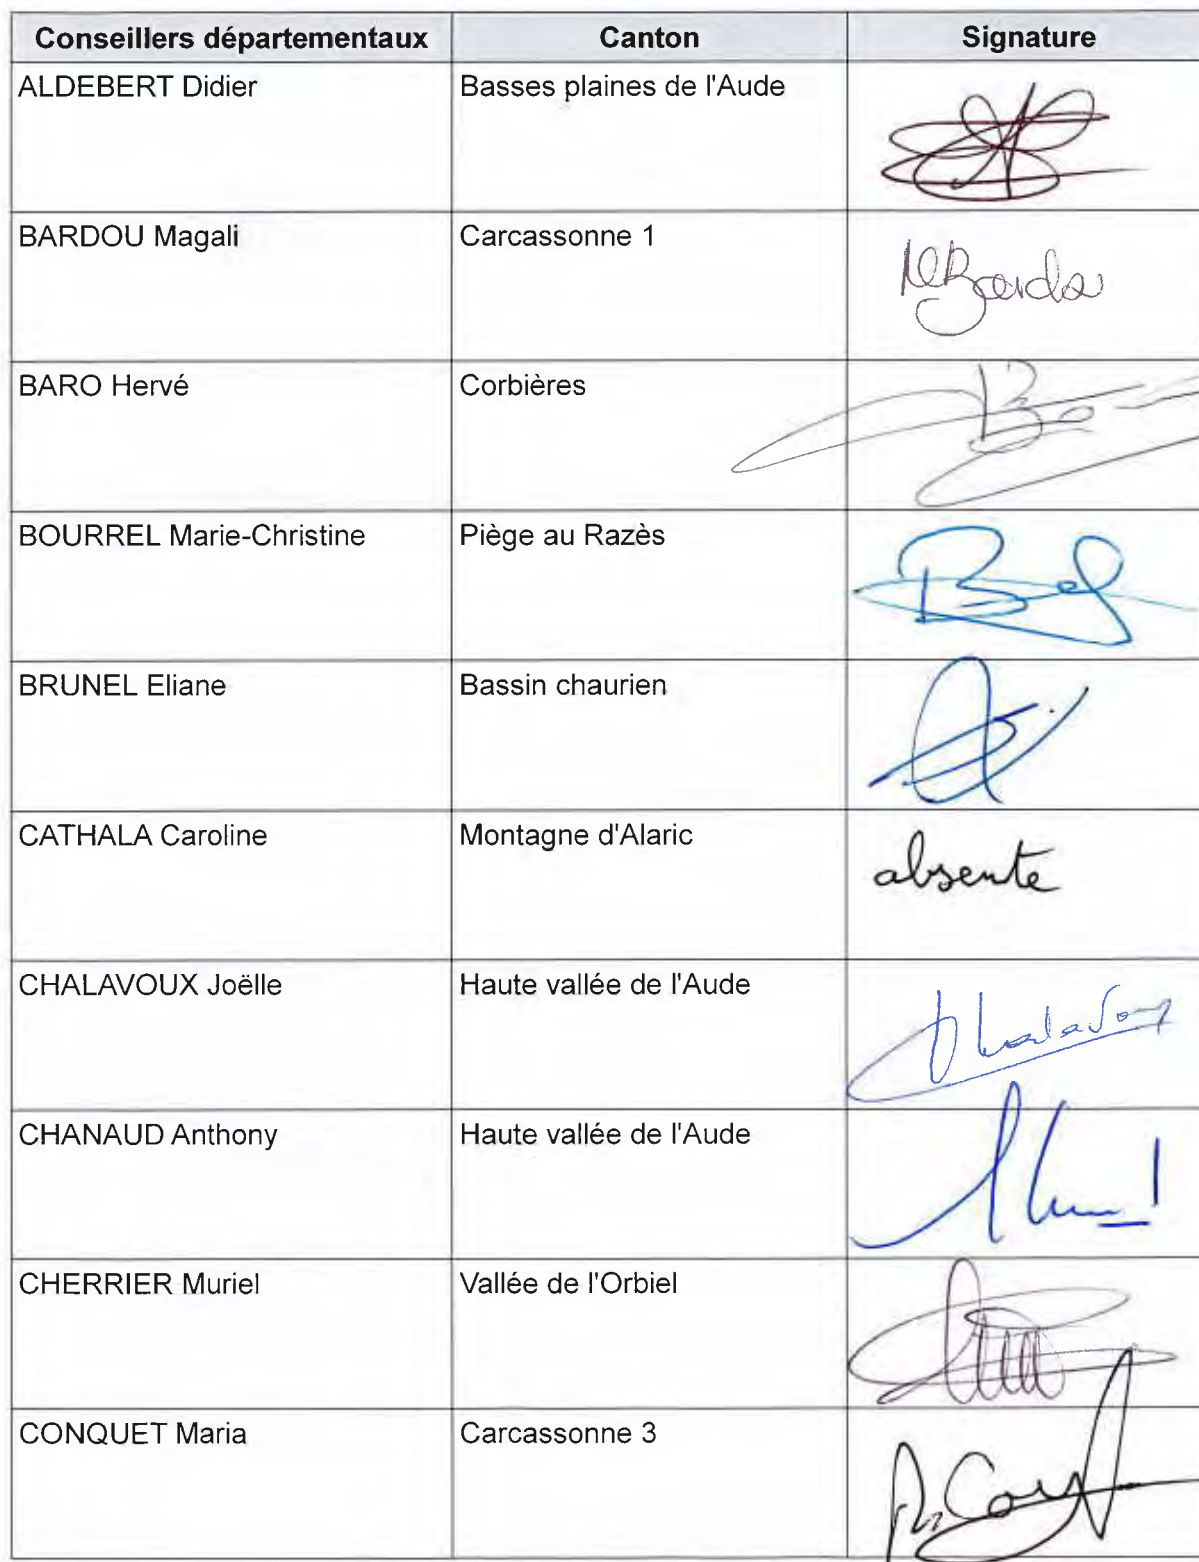 Conseillers départementaux Canton Signature
ALDEBERT Didier Basses plaines de l'Aude
BARDOU Magali Carcassonne 1
BARO Hervé Corbières
BOURREL Marie-Christine Piège au Razès
BRUNEL Eliane Bassin chaurien
CATHALA Caroline Montagne d'Alaric absente
CHALAVOUX Joëlle Haute vallée de l'Aude
CHANAUD Anthony Haute vallée de l'Aude
CHERRIER Muriel Vallée de l'Orbiel
CONQUET Maria Carcassonne 3